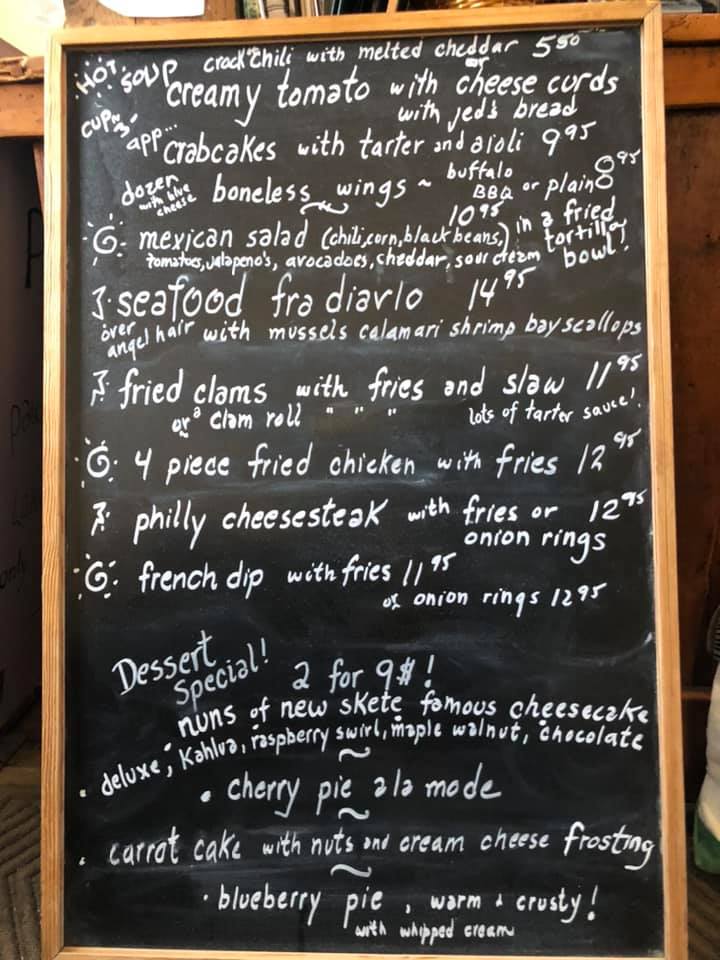 HOT SOUP crock chili with melted cheddar 5.50
or
creamy tomato with cheese curds
cup ~ 3- with jed's bread
app... crabcakes with tarter and aioli 9.95
dozen with blue cheese boneless wings ~ buffalo BBQ or plain 8.95
mexican salad (chili, corn, black beans,) 10.95 in a fried
tomatoes, jalapeno's, avocadoes, cheddar, sour cream tortilla bowl!
seafood fra diavlo 14.95
over angel hair with mussels calamari shrimp bay scallops
fried clams with fries and slaw 11.95
or a clam roll " " " lots of tarter sauce!
4 piece fried chicken with fries 12.95
philly cheesesteak with fries or 12.95
onion rings
french dip with fries 11.95
or onion rings 12.95
Dessert Special! 2 for 9$!
nuns of new skete famous cheesecake
deluxe, Kahlua, raspberry swirl, maple walnut, chocolate
cherry pie ala mode
carrot cake with nuts and cream cheese frosting
blueberry pie, warm & crusty!
with whipped cream